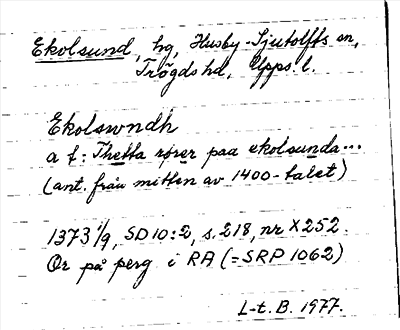 Ekolsund, hg, Husby-Sjutolfts sn,
Trögds hd, Upps. l.
Ekolswndh
a t: Thetta rører paa ekolsunda...
(ant. från mitten av 1400-talet)
1373 1/9, SD 10:2, s. 218, nr X 252.
Or på perg i RA (=SRP 1062)
L-t. B. 1977.